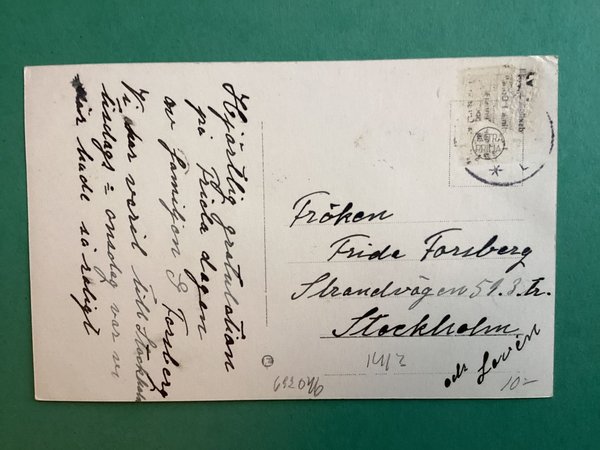 Hjärtlig gratulation
på Frida dagen
av familjen G Forsberg
Vi har varit till Stockholm
tisdags = onsdag var vi
där hade så roligt
EXTRA
PRIMA
Fröken
Frida Forsberg
Strandvägen 59. 3. tr.
Stockholm
och Sovin
14/2
10-